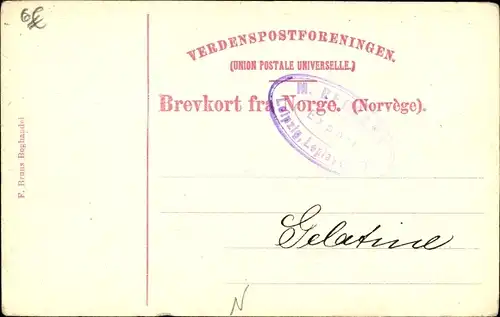 VERDENSPOSTFORENINGEN.
(UNION POSTALE UNIVERSELLE.)
Brevkort fra Norge. (Norvège).
M.
Leipzig,
F. Bruns Boghandel
Gelatine
N